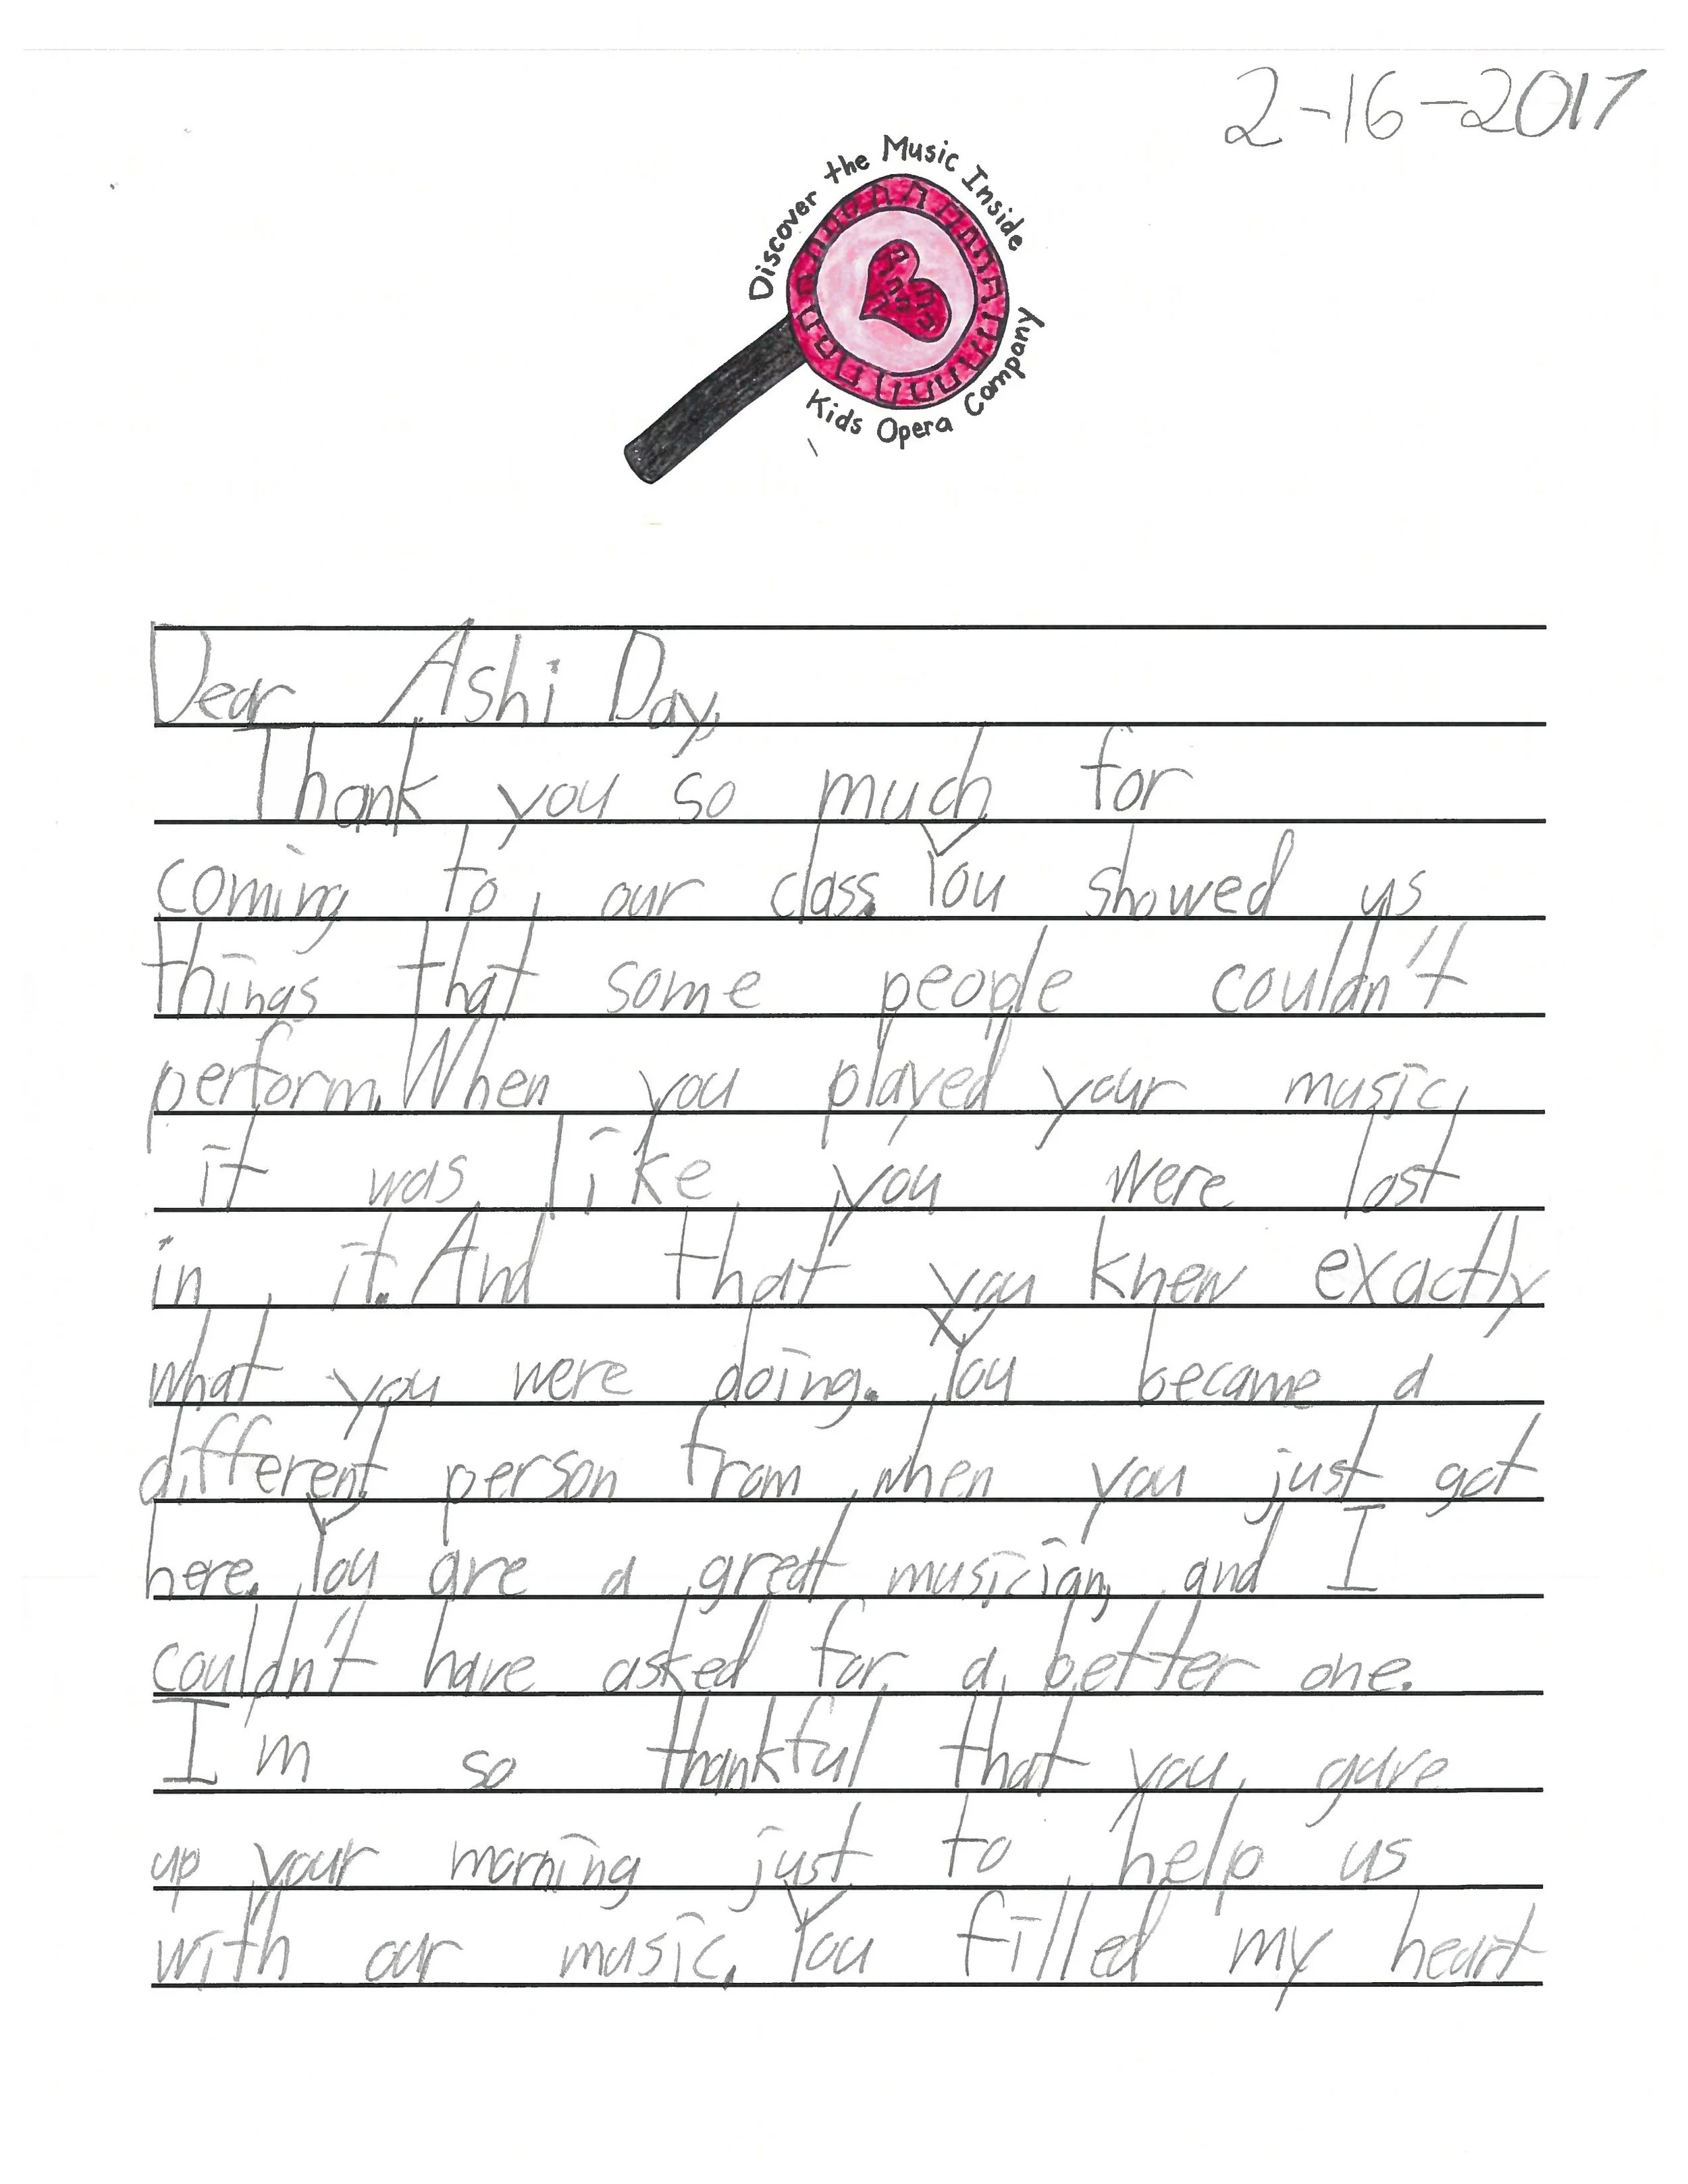 2-16-2017
Discover the Music Inside
Kids Opera Company
Dear Ashi Day,
Thank you so much for
coming to our class. You showed us
things that some people couldn't
perform. When you played your music,
it was like you were lost
in it. And that you knew exactly
what you were doing. You became a
different person from when you just got
here. You are a great musician, and I
couldn't have asked for a better one.
I'm so thankful that you gave
up your morning just to help us
with our music. You filled my heart